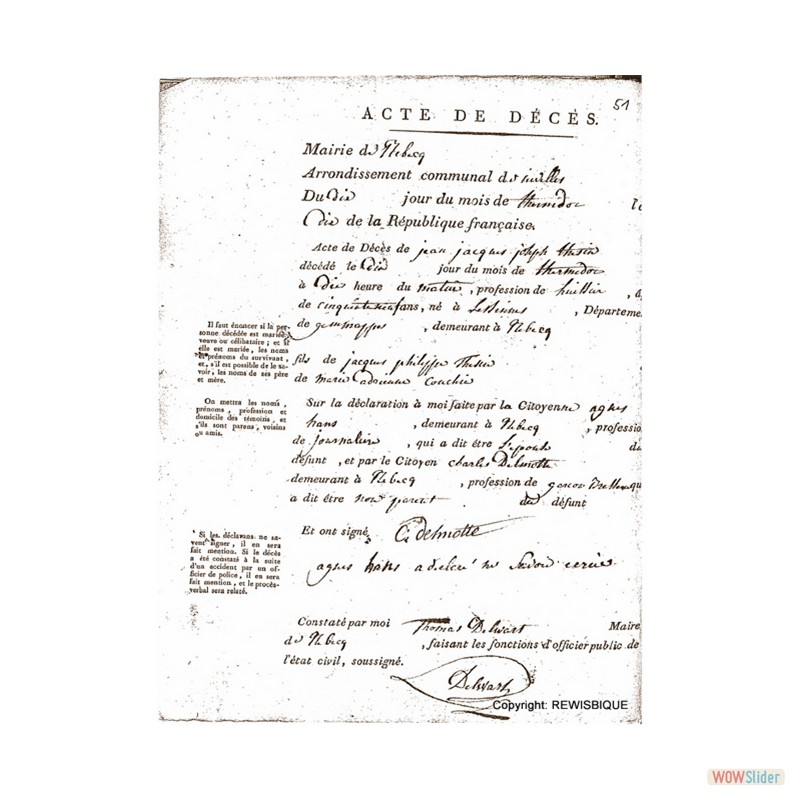 51
ACTE DE DÉCÈS.
Mairie de Rebecq
Arrondissement communal de nivelles
Du dix jour du mois de thermidor
dix de la République française.
Acte de Décès de jean jacques joseph
décédé le dix jour du mois de thermidor
à dix heure du matin, profession de huissier
de cinquante ans, né à Lessinnes, Départeme
de gemmappes, demeurant à Rebecq
fils de jacques philippe
de marie adrienne
Il faut énoncer si la per-
sonne décédée est mariée,
veuve ou célibataire; et si
elle est mariée, les noms
et prénoms du survivant,
et, s'il est possible de le sa-
voir, les noms de ses père
et mère.
Sur la déclaration à moi faite par la Citoyenne agnes
hans, demeurant à Rebecq, professio
de journaliere, qui a dit être L'epouse du
défunt, et par le Citoyen charles Delmotte
demeurant à Rebecq, profession de qu
a dit être non parent du défunt
On mettra les noms,
prénoms, profession et
domicile des témoins, et
s'ils sont parens, voisins
ou amis.
Et ont signé, C. delmotte
agnes hans a declaré ne savoir ecrire
Si les déclarans ne sa-
vent signer, il en sera
fait mention. Si le décès
a été constaté à la suite
d'un accident par un of-
ficier de police, il en sera
fait mention, et le procès-
verbal sera relaté.
Constaté par moi Thomas Delwart Maire
de Rebecq, faisant les fonctions d'officier public de
l'état civil, soussigné.
Delwart
Copyright: REWISBIQUE
WOWSlider